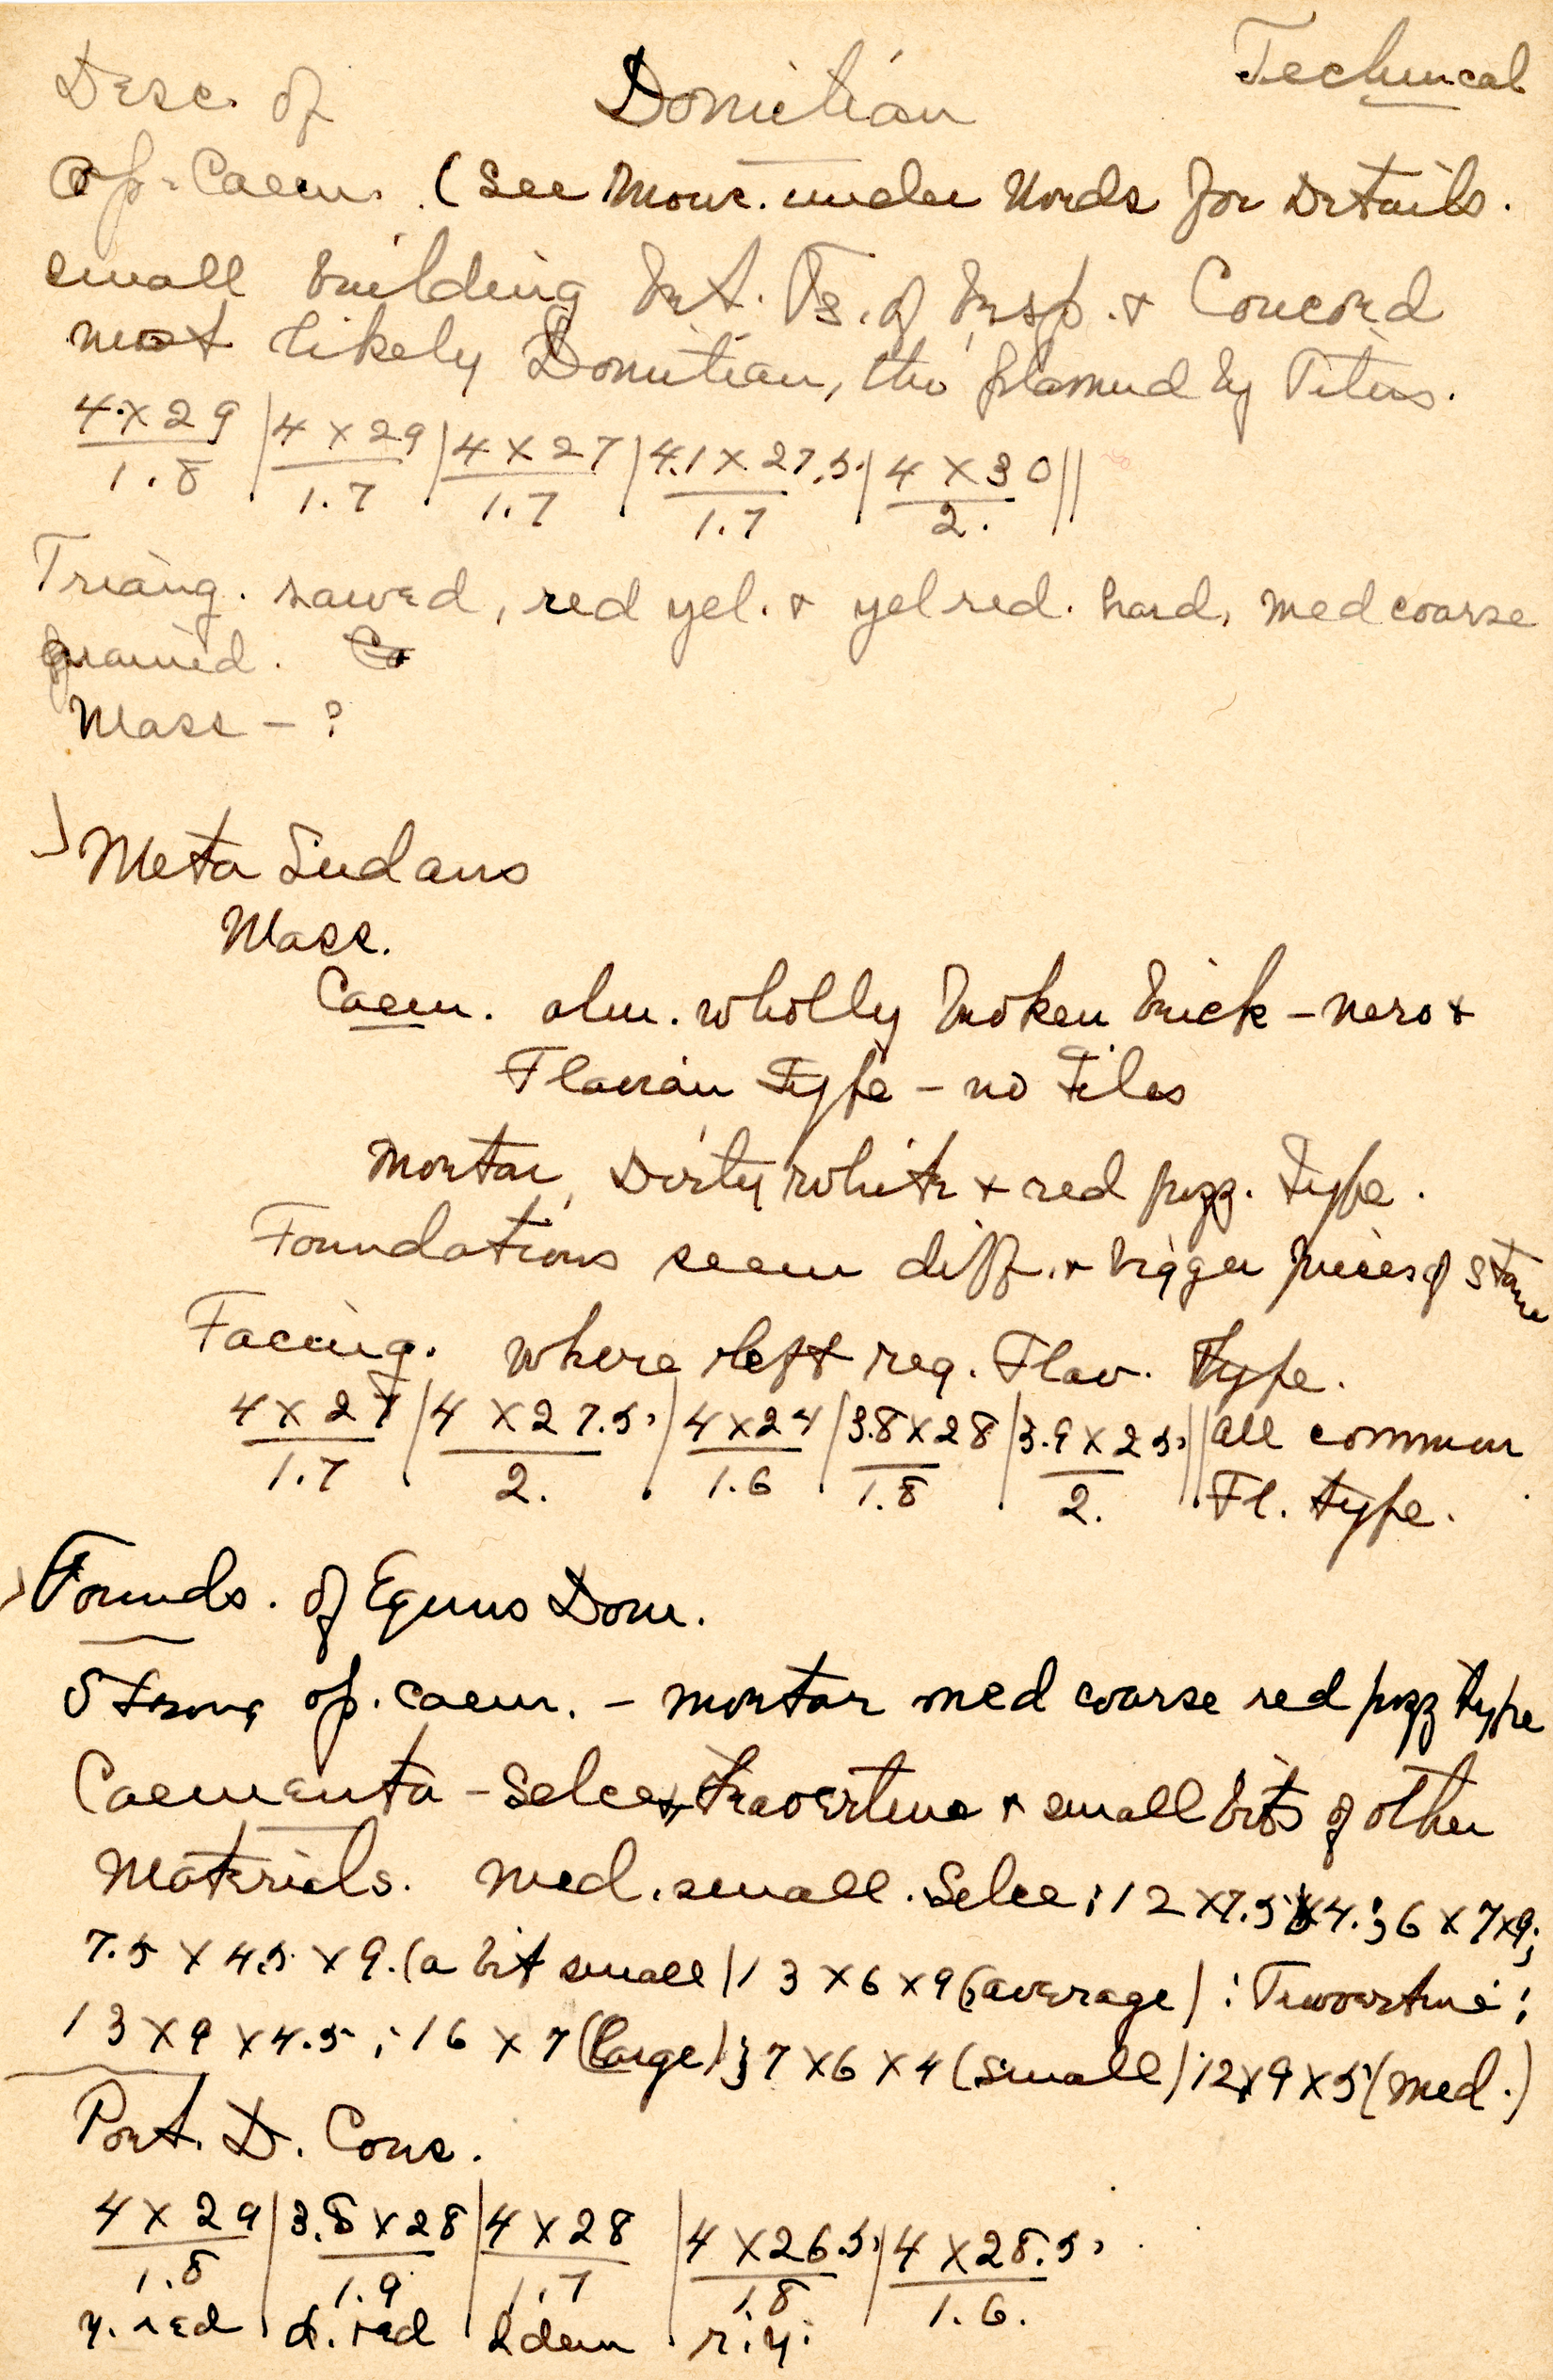 Technical
Desc. of Domitian
Op. Caem. (See Mour. under Words for Details.
small building bet. Ts. of Vesp. & Concord
most likely Domitian, tho planned by Titus.
4 x 29 / 1.8 | 4 x 29 / 1.7 | 4 x 27 / 1.7 | 4.1 x 27.5 / 1.7 | 4 x 30 / 2. ||
Triang. sawed, red yel. & yel red. hard, med coarse
grained.
Mass - ?
Meta Sudans
Mass.
Caem. alm. wholly broken brick - Nero &
Flavian type - no tiles
Mortar, Dirty white & red pozz. type.
Foundations seem diff. & bigger pieces of stone
Facing. where left reg. Flav. type.
4 x 27 / 1.7 | 4 x 27.5 / 2. | 4 x 24 / 1.6 | 3.8 x 28 / 1.8 | 3.9 x 25 / 2. || all common
Fl. type.
Founds. of Equus Dom.
Strong op. caem. - mortar med coarse red pozz type
Caementa - Selce & travertine & small bits of other
Materials. Med. small. Selce; 12 x 7.5 x 4.; 6 x 7 x 9;
7.5 x 4.5 x 9. (a bit small) 13 x 6 x 9 (average) : Travertine:
13 x 9 x 4.5; 16 x 7 (large); 7 x 6 x 4 (small) 12 x 9 x 5 (med.)
Port. D. Cons.
4 x 29 / 1.8 | 3.8 x 28 / 1.9 | 4 x 28 / 1.7 | 4 x 26.5 / 1.8 | 4 x 28.5 / 1.6.
y. red | d. red | Idem | r. y.